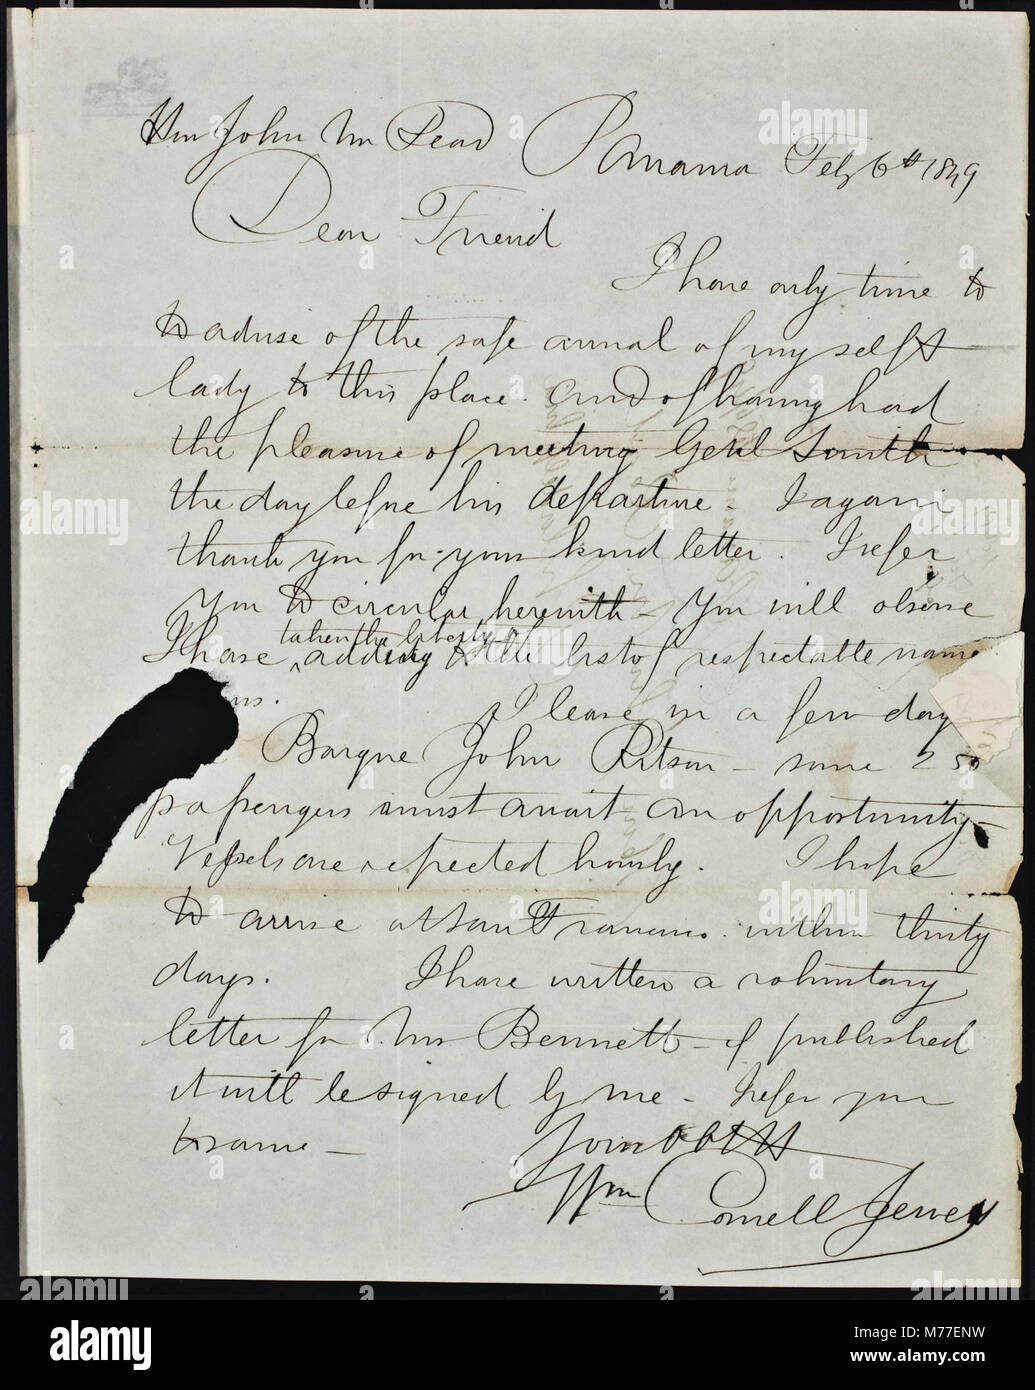 Hon John McLean Panama Feby 6th 1849
Dear Friend
I have only time to
to advise of the safe arrival of my self &
lady to this place. and of having had
the pleasure of meeting Genl Smith
the day before his departure. I again
thank you for your kind letter. I refer
you to circular herewith - You will observe
taken the liberty of
I have adding to the list of respectable name
I leave in a few day
Barque John Ritson - some 250
passengers must await an opportunity -
Vessels are expected hourly. I hope
to arrive at San Francisco within thirty
days. I have written a voluntary
letter for Mr Bennett - if published
it will be signed by me - I refer you
to same -
Your Obt St
Wm Cornell Jewett
alamy
a
M77ENW
www.alamy.com